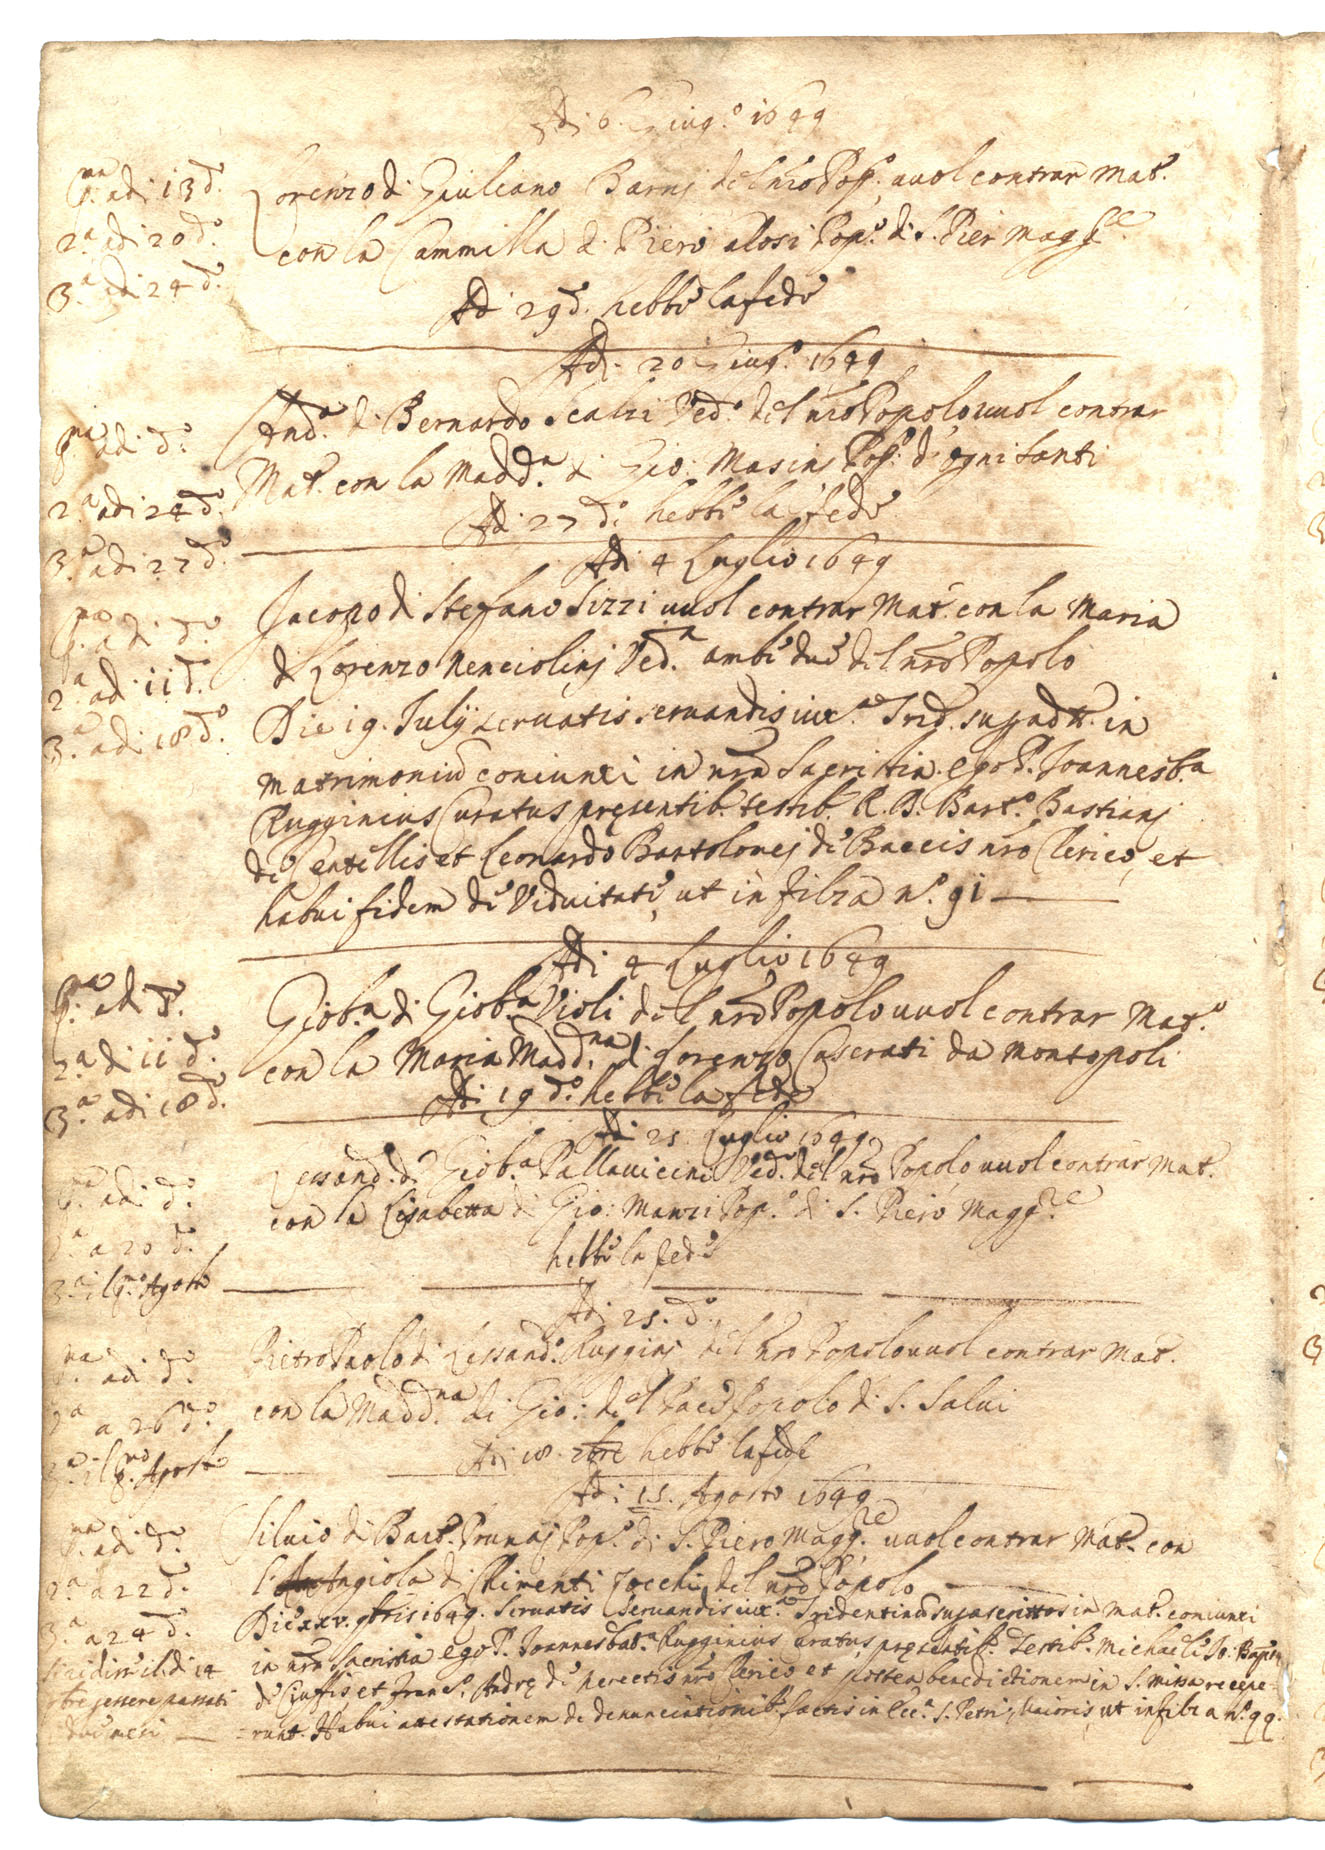 Adi 6. Giug.o 1649
p.ma adi 13 d.o
2.a adi 20 d.o
3.a adi 24 d.o
Lorenzo di Giuliano Barnj del nro Pop.o vuol contrar Mat.o
con la Cammilla di Piero alosi Pop.o di S. Pier Magg.re
Adi 29 d.o hebbe la fede
Adi 20 Giug.o 1649
p.ma adi d.o
2.a adi 24 d.o
3.a adi 27 d.o
And.a di Bernardo Scalzi Ved.o del nro Popolo vuol contrar
Mat.o con la Madd.a di Gio: Masinj Pop.o d'ogni Santi
Adi 27 d.o hebbe la fede
Adi 4 Luglio 1649
p.ma adi d.o
2.a adi 11 d.o
3.a adi 18 d.o
Jacopo di Stefano Sizzi vuol contrar Mat.o con la Maria
di Lorenzo Nenciolinj Ved.a ambe due del nro Popolo
Die 19. Julij servatis servandis iux.a Trid. supradtt. in
matrimoniu coniunxi in nra Sacristia. ego P. Joannesb.a
Rugginius Curatus presentib. testib. R. D. Bart.o Bastianj
de Centellis et Leonardo Bartolomej de Baccis nro Clerico, et
habui fidem de Viduitate, ut in filza n.o 91
Adi 4 Luglio 1649
p.ma adi d.o
2.a di 11 d.o
3.a adi 18 d.o
Giob.a di Giob.a Violi del nro Popolo vuol contrar Mat.o
con la Maria Madd.na di Lorenzo Caserati da Montopoli
Adi 19 d.o hebbe la fede
Adi 25 Luglio 1649
p.ma adi d.o
2.a a 20 d.o
3.a il p.mo Agosto
Lessand.o di Giob.a Pallavicini Ved.o del nro Popolo vuol contrar Mat.o
con la Lisabetta di Gio: Manzi Pop.o di S. Piero Magg.re
hebbe la fede
Adi 25. d.o
p.ma adi d.o
2.a a 26 d.o
3.a il p.mo Agosto
Pietro Paolo di Lessand.o Rugginj del nro Popolo vuol contrar Mat.o
con la Madd.na di Gio: del Popolo di S. Salvi
Adi 18. 2bre hebbe la fede
Adi 15. Agosto 1649
p.ma adi d.o
2.a a 22 d.o
3.a a 24 d.o
Silvio di Bart.o Prunaj Pop.o di S. Piero Magg.re vuol contrar Mat.o con
l'Angiola di Chimenti Zocchi del nro Popolo
Die xxv. 9bris 1649. Servatis Servandis iux.a Tridentinu suprascrittos in Mat.o coniunxi
in nra Sacristia ego P. Joannesbat.a Rugginius Curatus, presentib. Testib. Michaele Jo: Bapta
de Ciuffis et Fran.o Andreę de Perectis nro Clerico et postea benedictionem in S. missa recepe-
-runt. Habui attestationem de denunciationib. factis in Ecc.a S. Petri Maioris, ut in filza n.o 99.
il di 14
essere passati
due mesi